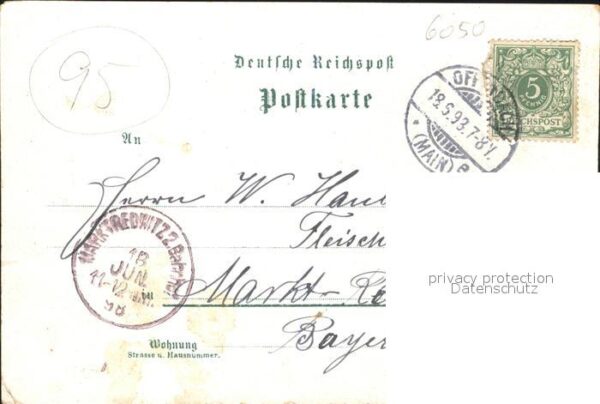 95
6050
Deutsche Reichspost
Postkarte
5
PFENNIG
REICHSPOST
OFFENBACH
18.6.98.7-8V.
* (MAIN) e
An
Herrn W.
Fleisch
in Markt-Re
Bayer
MARKTREDWITZ 2. Bahnhf.
18
JUN.
11-12
98
privacy protection
Datenschutz
Wohnung
Strasse u. Hausnummer.